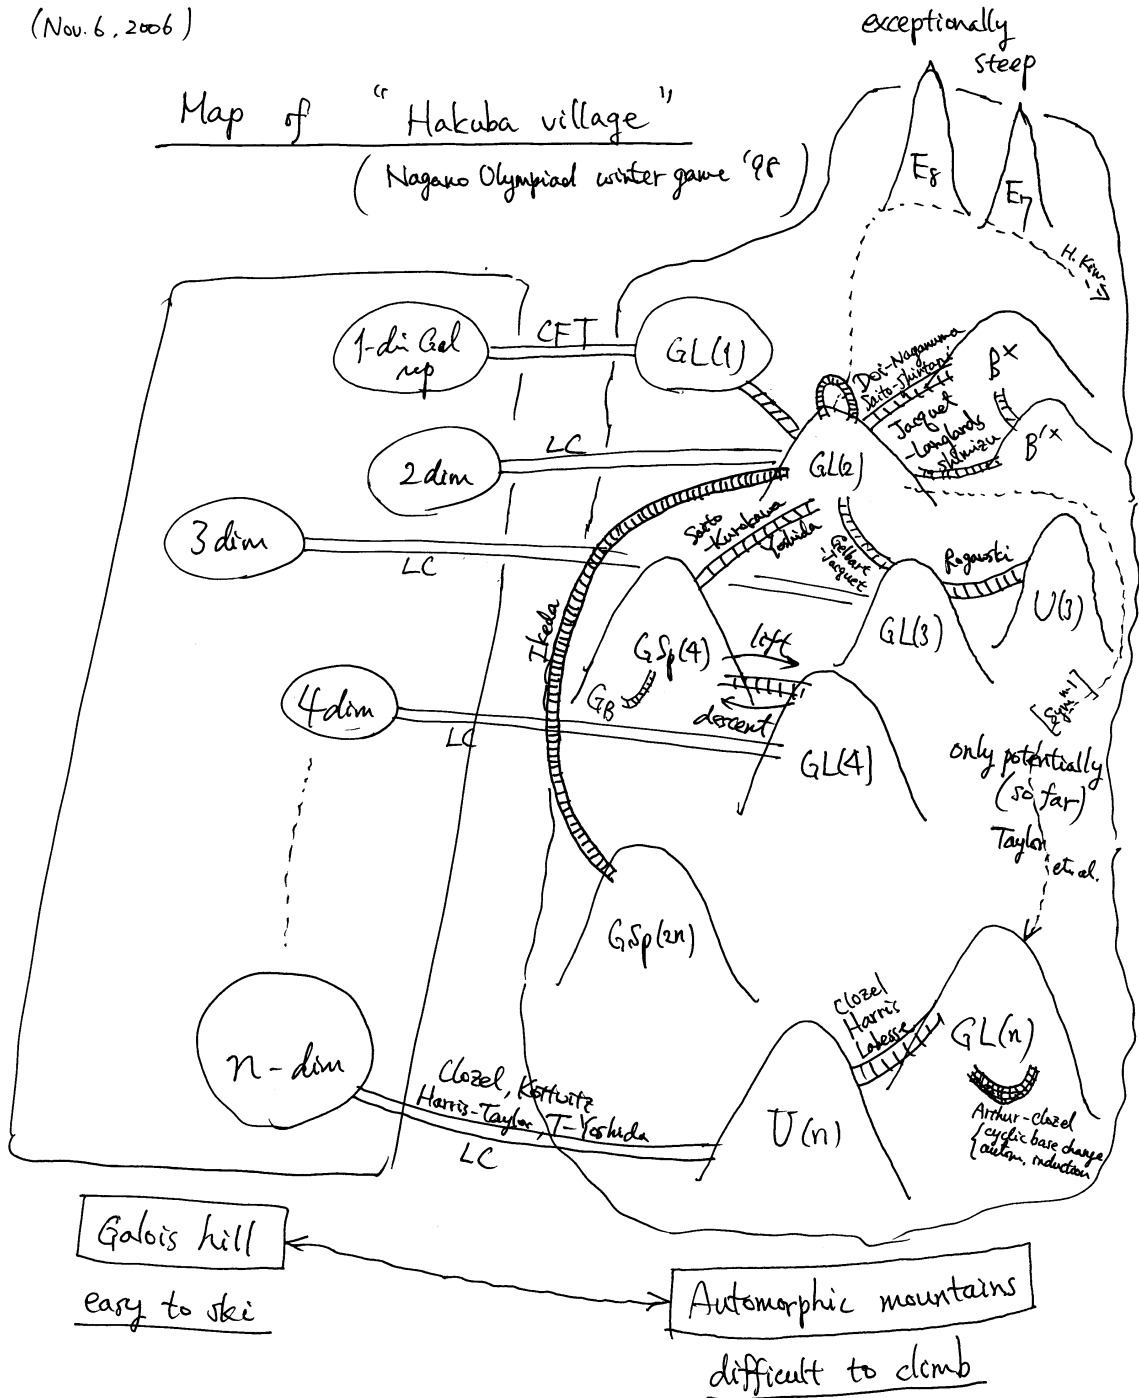 (Nov. 6, 2006)
exceptionally
steep
Map of "Hakuba village"
(Nagano Olympiad winter game '98)
E8
E7
H. Kim
1-di Gal
rep
CFT
GL(1)
Doi-Naganuma
Saito-Shintani
B×
Jacquet
-Langlands
Shimizu
B'×
2 dim
LC
GL(2)
3 dim
LC
Saito
-Kurokawa
Yoshida
Gelbart
-Jacquet
Rogawski
U(3)
GL(3)
Ikeda
GSp(4)
lift
GB
descent
4 dim
LC
GL(4)
[Sym^m]
only potentially
(so far)
Taylor
et al.
GSp(2n)
n-dim
Clozel
Harris
Labesse
GL(n)
Clozel, Kottwitz
Harris-Taylor, T-Yoshida
LC
U(n)
Arthur-Clozel
{cyclic base change
autom. induction
Galois hill
easy to ski
Automorphic mountains
difficult to climb